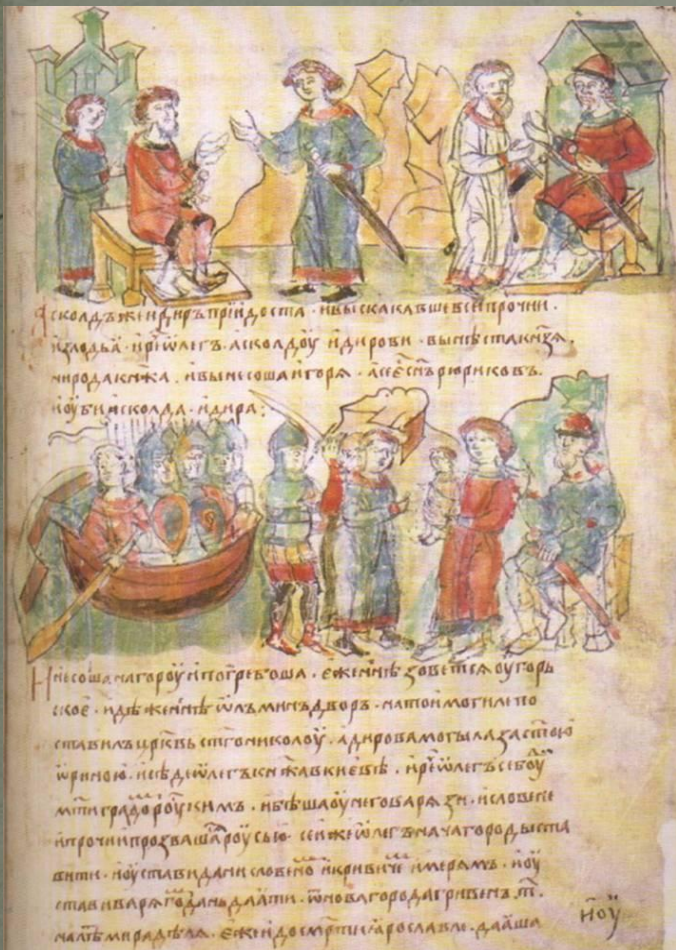 Асколдъ же и диръ приідоста · и выскакавше вси прочии ·
излодьӕ · и рⷱ҇е ѡлегъ · асколдоу и дирови · вы нѣста кнѧзѧ ·
ни рода кнѧжа · и вынесоша игорѧ · а се есⷭ҇ сн҃ъ рюриковъ ·
и оубиша асколда · и дира ;
И несоша на гороу и погребоша · еже нн҃ѣ зоветсѧ оугорь
ское · идѣже нн҃ѣ ѡлъминъ дворъ · на тои могиле по
ставилъ цр҃квь ст҃го николоу · а дирова могыла за ст҃ою
ѡриною · и сѣде ѡлегъ кнѧжа в киевѣ · и рⷱ҇е ѡлегъ се боуⷣ
мт҃и градомъ роускимъ · и бѣша оу него варѧзи · и словене
и прочии прозвашасѧ роусью · сеи же ѡлегъ нача городы ста
вити · и оустави дани словеномъ и кривичемъ и мерѧмъ · и оу
стави варѧгомъ дань даӕти · ѿ новагорода гривенъ ·т҃·
на лѣⷮ мира дѣлѧ · еже и до смр҃ти ӕрославлѧ · даӕша
и оу